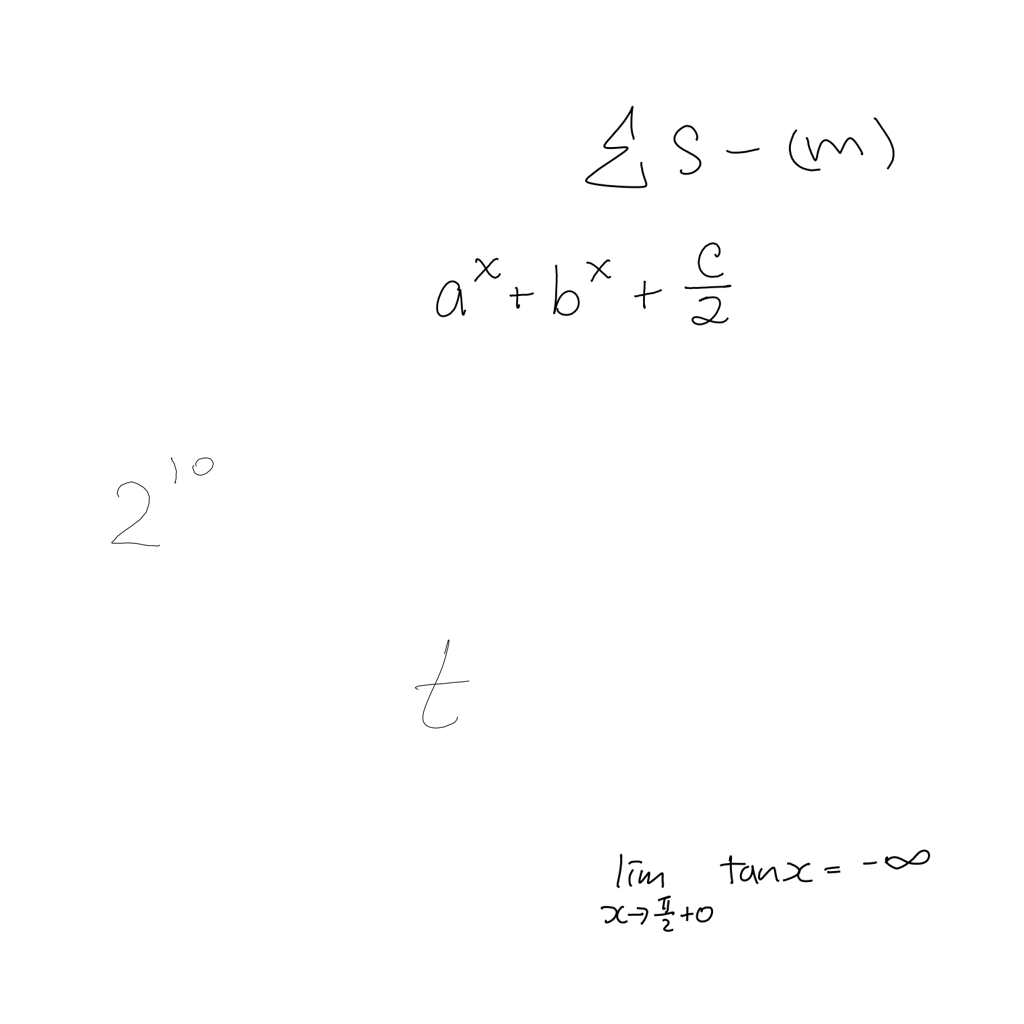 ∑ S - (m)
a^x + b^x + c/2
2^10
t
lim x→π/2+0 tanx = -∞